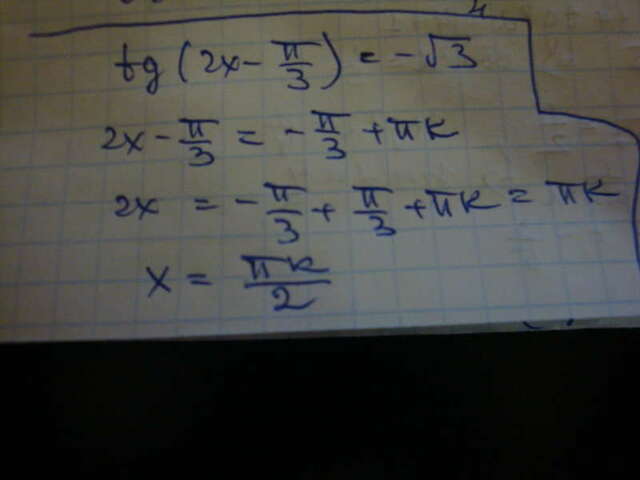 tg (2x - π/3) = -√3
2x - π/3 = - π/3 + πk
2x = - π/3 + π/3 + πk = πk
x = πk/2